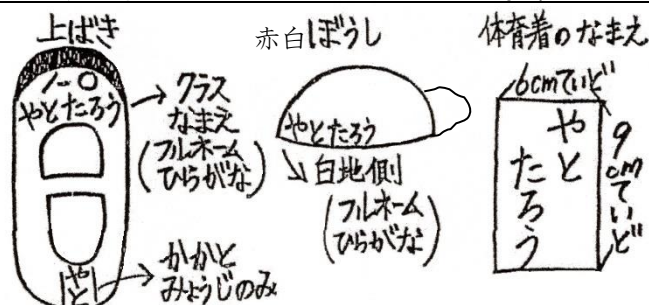 上ばき
1-〇
やとたろう
クラス
なまえ
(フルネーム
ひらがな)
やと
かかと
みょうじのみ
赤白ぼうし
やとたろう
白地側
(フルネーム
ひらがな)
体育着のなまえ
6cmていど
9cmていど
やと
たろう